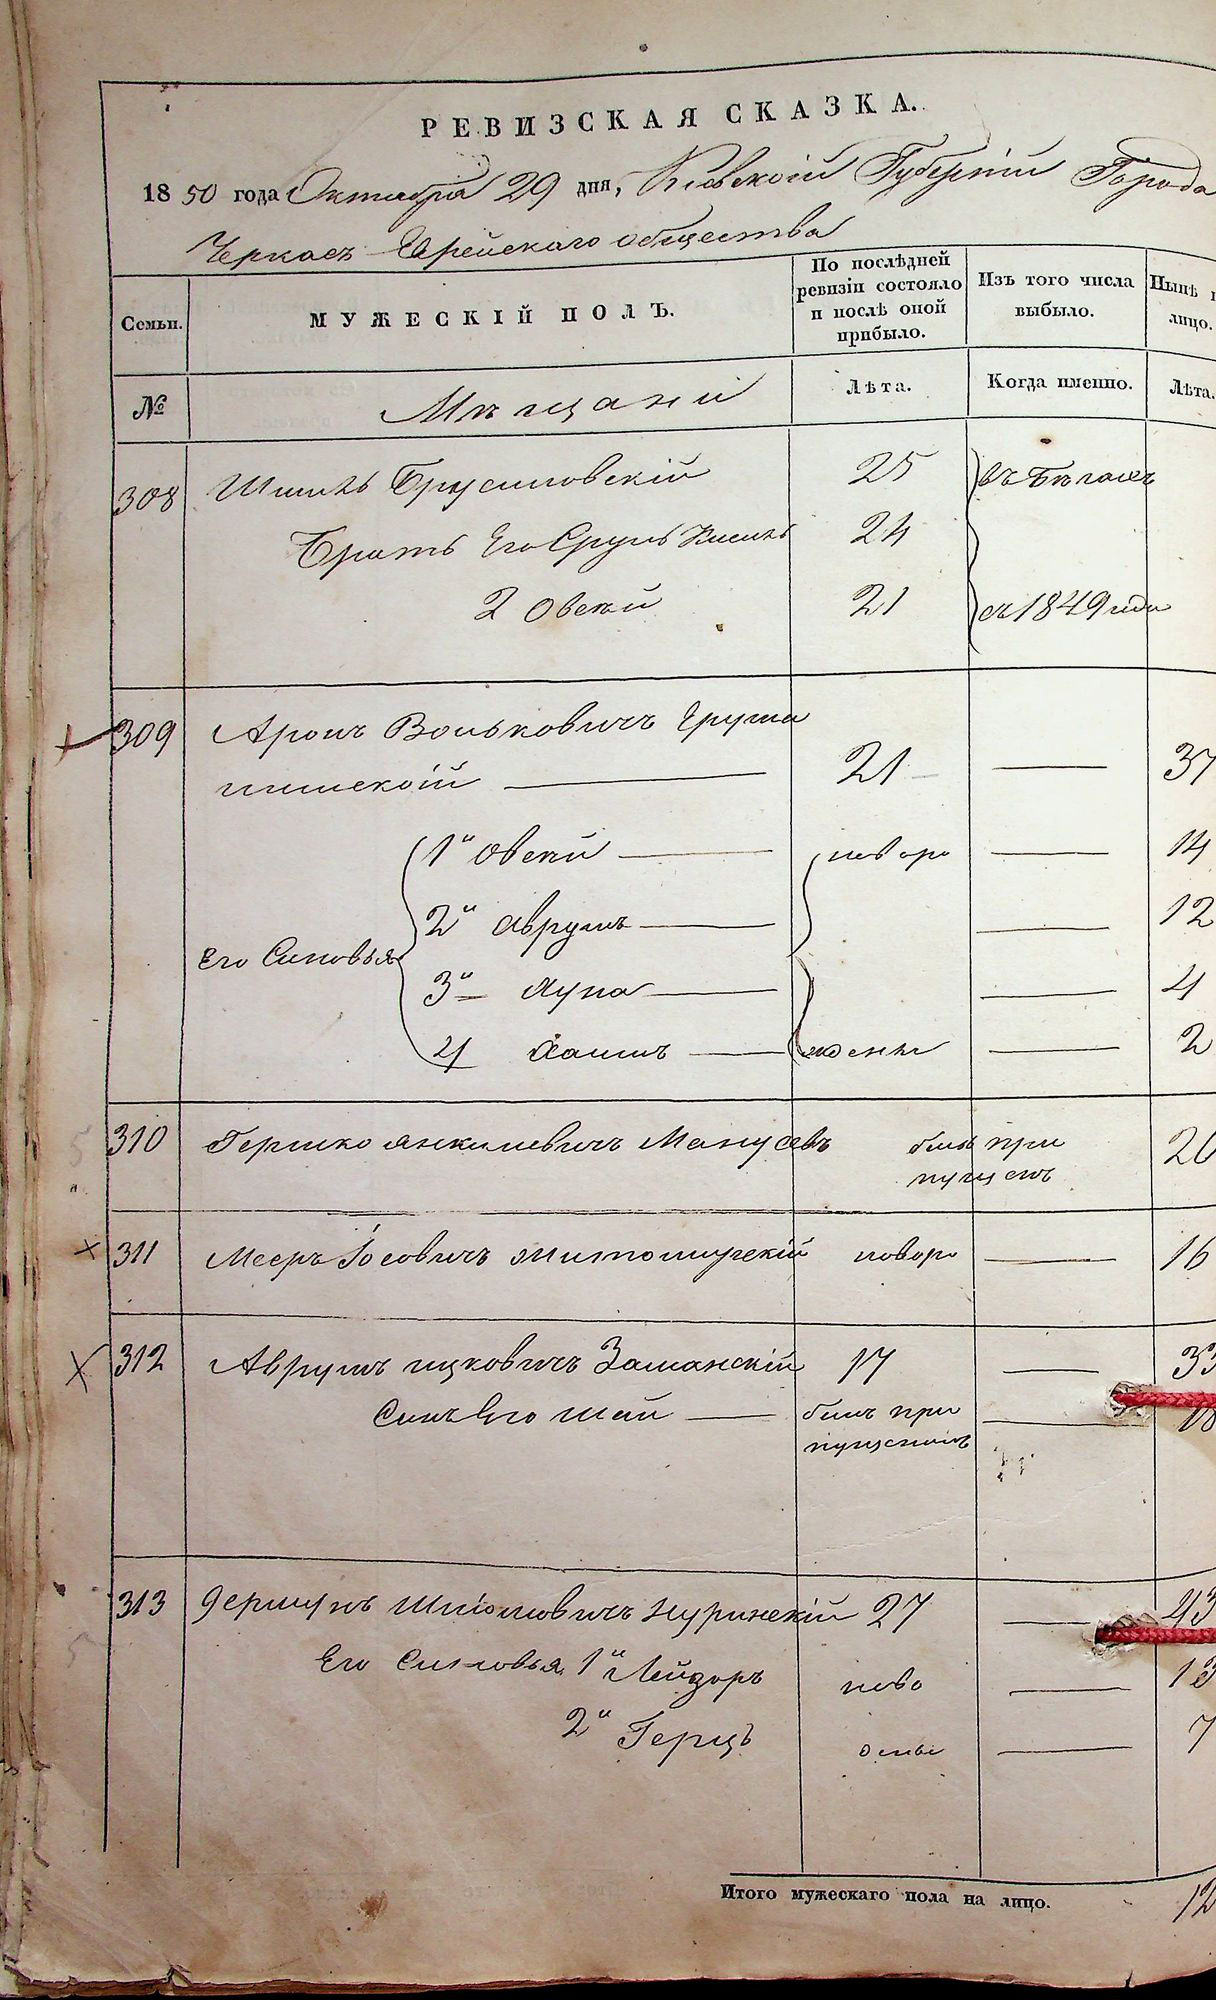 РЕВИЗСКАЯ СКАЗКА.
1850 года Октября 29 дня, Кіевской Губерніи Города
Черкасъ Еврейскаго общества
Семьи.
МУЖЕСКІЙ ПОЛЪ.
По послѣдней
ревизіи состояло
и послѣ оной
прибыло.
Изъ того числа
выбыло.
Нынѣ
лицо.
№
Мѣщани
Лѣта.
Когда именно.
Лѣта.
308 Брусиловскій 25 въ бѣгахъ
Братъ Его Сруль 24
2 Овсѣй 21 съ 1849 года
309 Аронъ Вольковичъ
21 37
1й Овсѣй новоро 14
2й Аврумъ 12
Его Сыновья
3й 4
4 Хаимъ жденны 2
310 Гершко Янкелевичъ Манусовъ былъ при 20
пущенъ
311 Мееръ Іосовичъ Житомирскій новоро 16
312 Аврумъ Ицковичъ Заманскій 17 33
Сынъ Его Шай былъ при 18
пущенъ
313 27 43
Его Сыновья 1й Лейзоръ ново 13
2й Герцъ 7
Итого мужескаго пола на лицо. 12